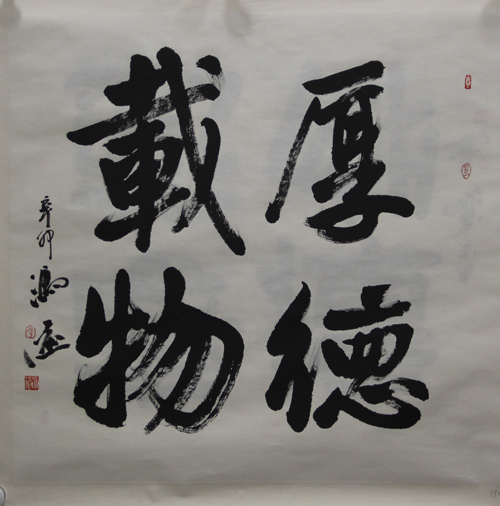 厚德
載物
辛卯